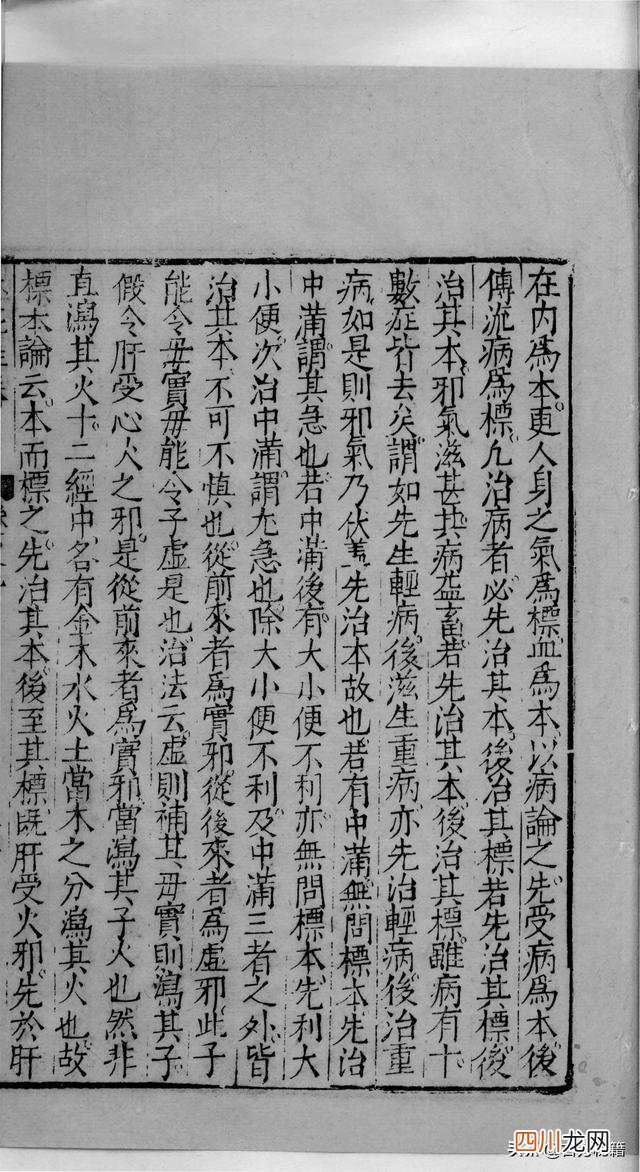 在内爲本更人身之氣爲標血爲本以病論之先受病爲本後
傳流病爲標凢治病者必先治其本後治其標若先治其標後
治其本邪氣滋甚其病益畜若先治其本後治其標雖病有十
數症皆去矣謂如先生輕病後滋生重病亦先治輕病後治重
病如是則邪氣乃伏盖先治本故也若有中滿無問標本先治
中滿謂其急也若中滿後有大小便不利亦無問標本先利大
小便次治中滿謂尤急也除大小便不利及中滿三者之外皆
治其本不可不慎也從前來者爲實邪從後來者爲虛邪此子
能令母實母能令子虛是也治法云虛則補其母實則瀉其子
假令肝受心火之邪是從前來者爲實邪當瀉其子火也然非
直瀉其火十二經中各有金木水火土當木之分瀉其火也故
標本論云本而標之先治其本後至其標既肝受火邪先於肝
四川龙网